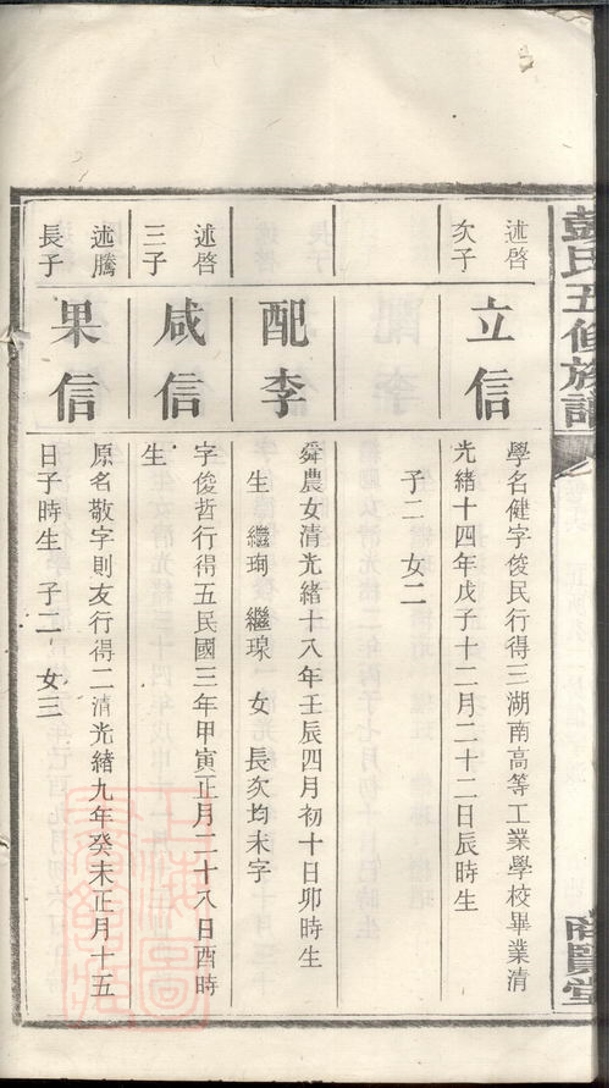 彭氏五修族譜
述啓
次子
立信
學名健字俊民行得三湖南高等工業學校畢業清
光緒十四年戊子十二月二十二日辰時生
子二 女二
配李
舜農女清光緒十八年壬辰四月初十日卯時生
生 繼珣 繼瑔 女 長次均未字
述啓
三子
咸信
字俊哲行得五民國三年甲寅正月二十八日酉時
生
述騰
長子
果信
原名敬字則友行得二清光緒九年癸未正月十五
日子時生 子二 女三